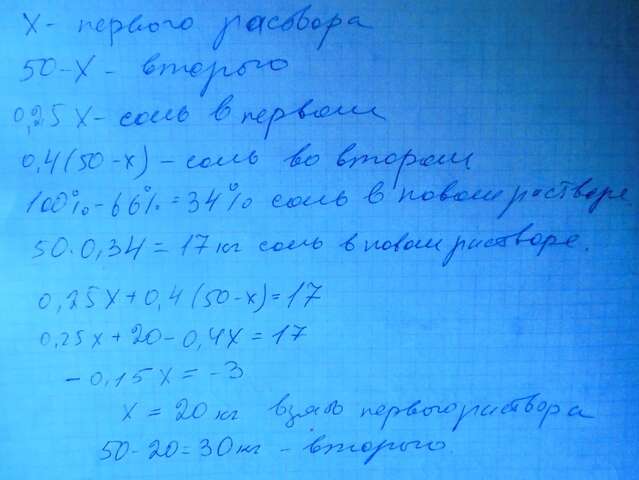 х - первого раствора
50-х - второго
0,25 х - соль в первом
0,4(50-х) - соль во втором
100% - 66% = 34% соль в новом растворе
50·0,34 = 17 кг соль в новом растворе.
0,25х+0,4(50-х)=17
0,25х+20-0,4х=17
-0,15х=-3
х = 20 кг взять первого раствора
50-20=30кг - второго.